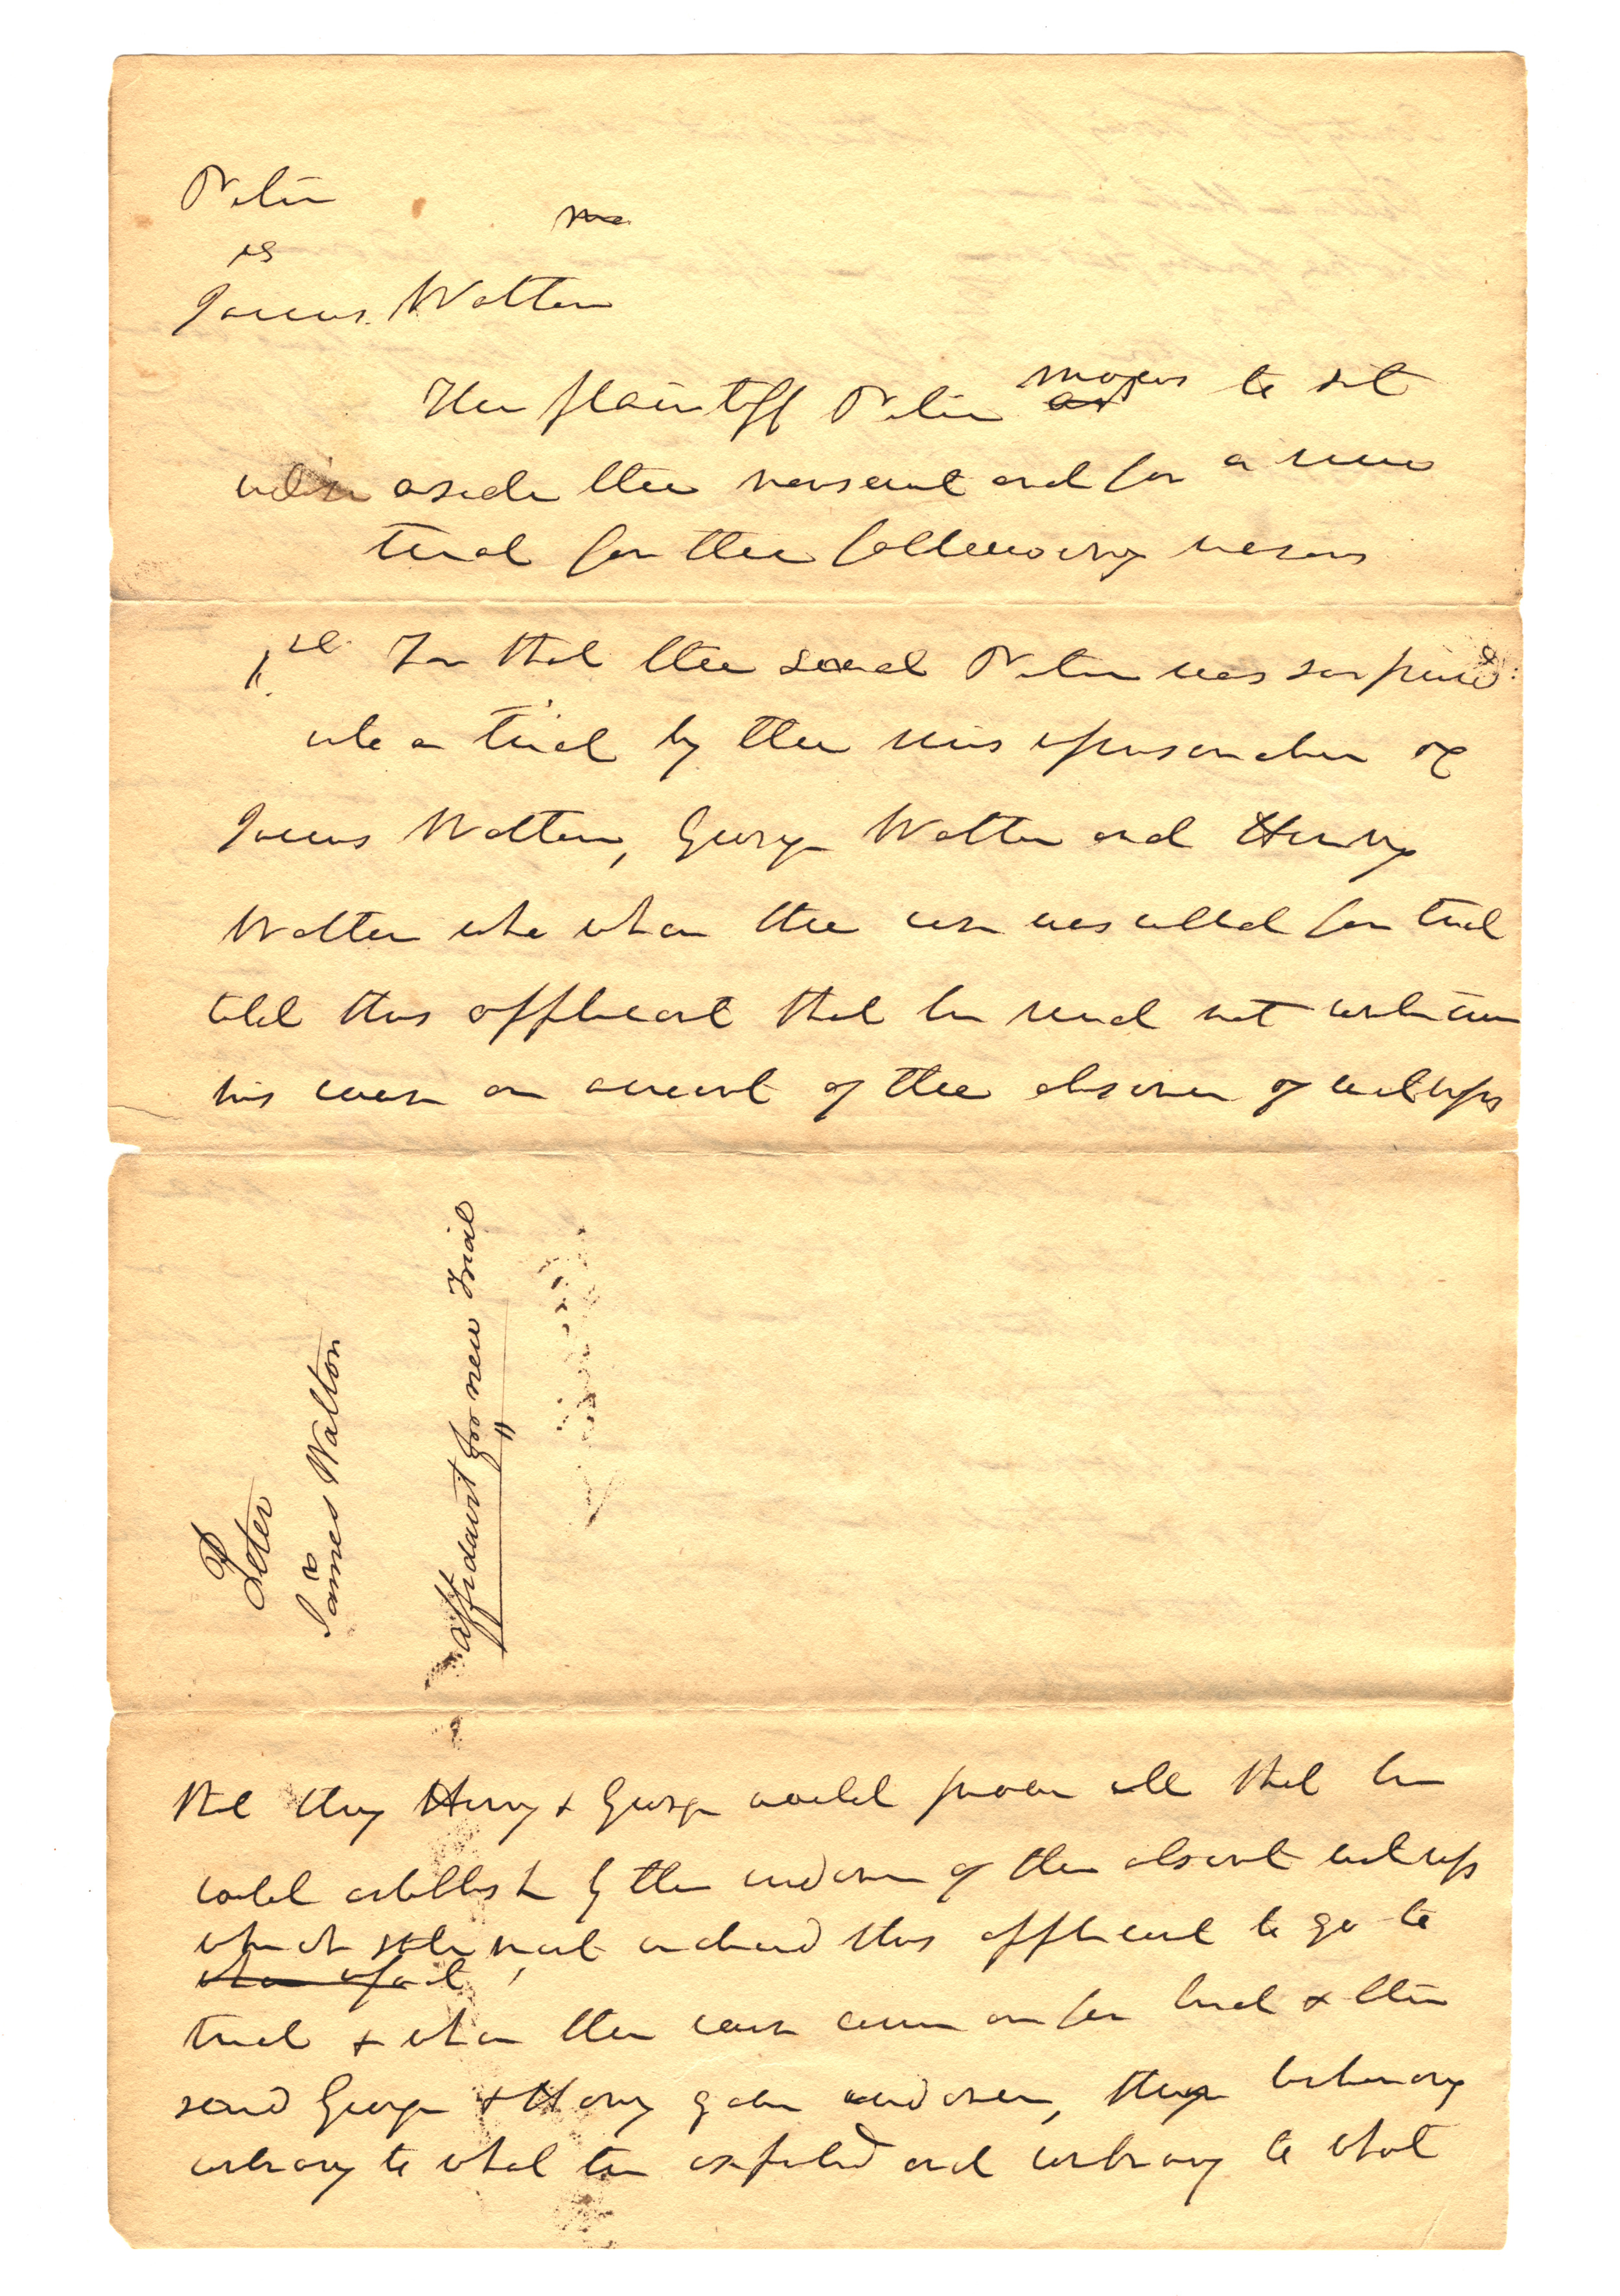 Peter
vs
James Walton
The plaintiff Peter moves to set
aside the nonsuit and for a new
trial for the following reasons
1st For that the said Peter was surprised
into a trial by the misrepresentation of
James Walton, George Walton and Henry
Walton who when the case was called for trial
told this affiant that he need not continue
his case on account of the absence of witness
Peter
vs
James Walton
affidavit for new Trial
that they Henry & George would prove all that he
could establish by the evidence of the absent witness
which statement induced this affiant to go to
trial & when the cause came on for trial & the
said George & Henry gave evidence, their testimony
contrary to what he expected and contrary to what